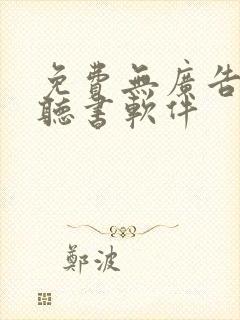 免費無廣告
聽書軟件
鄭波